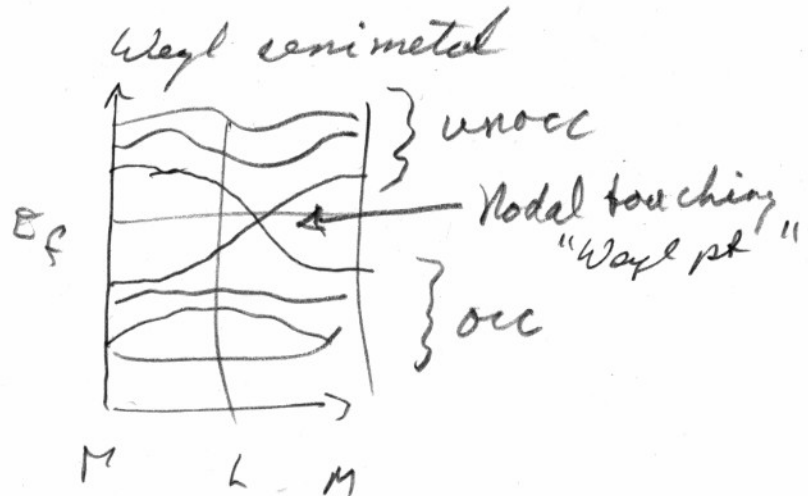 Weyl semimetal
unocc
Nodal touching
"Weyl pt"
εf
occ
L M